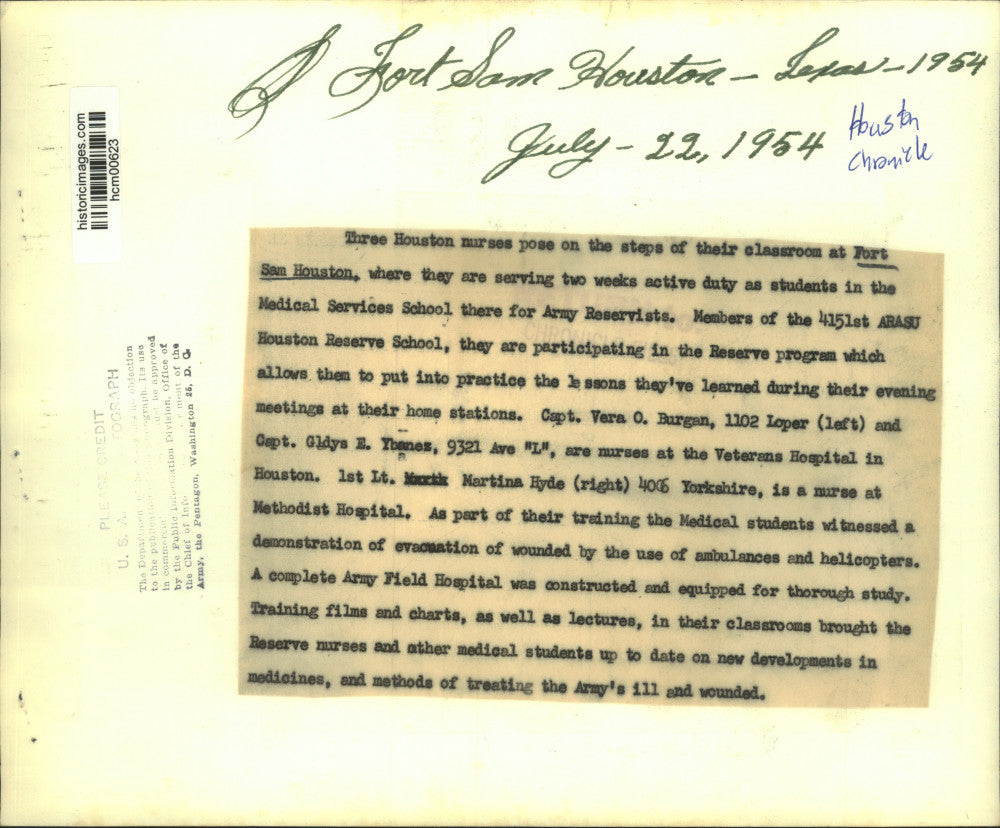 Fort Sam Houston - Texas - 1954
July - 22, 1954
Houston
Chronicle
historicimages.com
hcm00623
Three Houston nurses pose on the steps of their classroom at Fort
Sam Houston, where they are serving two weeks active duty as students in the
Medical Services School there for Army Reservists. Members of the 4151st ARASU
Houston Reserve School, they are participating in the Reserve program which
allows them to put into practice the lessons they've learned during their evening
meetings at their home stations. Capt. Vera O. Burgan, 1102 Loper (left) and
Capt. Gldys E. Ybanez, 9321 Ave "L", are nurses at the Veterans Hospital in
Houston. 1st Lt. Martina Hyde (right) 4006 Yorkshire, is a nurse at
Methodist Hospital. As part of their training the Medical students witnessed a
demonstration of evacuation of wounded by the use of ambulances and helicopters.
A complete Army Field Hospital was constructed and equipped for thorough study.
Training films and charts, as well as lectures, in their classrooms brought the
Reserve nurses and other medical students up to date on new developments in
medicines, and methods of treating the Army's ill and wounded.
PLEASE CREDIT
U. S. A. PHOTOGRAPH
The Department objection
to the publication photograph. Its use
in commercial must be approved
by the Public Information Division, Office of
the Chief of Info ment of the
Army, the Pentagon, Washington 25, D. C.